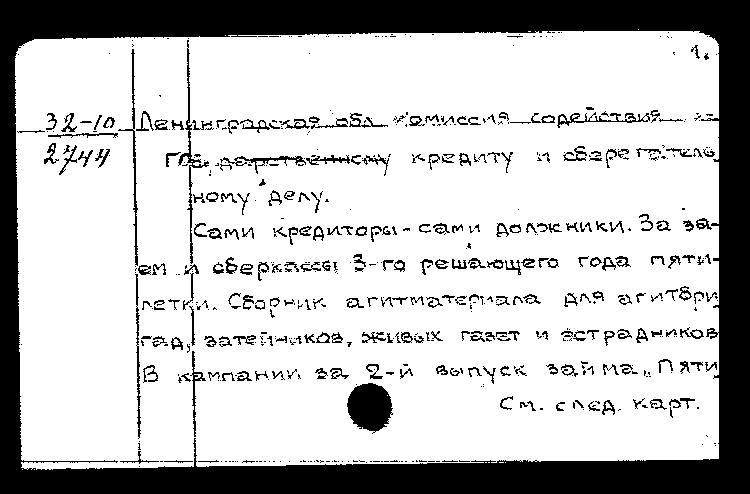 1.
32-10 Ленинградская обл. комиссия содействия
2744 гос. дарственному кредиту и сберегатель
ному делу.
Сами кредиторы - сами должники. За за-
ем и сберкассы 3-го решающего года пяти-
летки. Сборник агитматериала для агитбри
гад, затейников, живых газет и эстрадников
В кампании за 2-й выпуск займа „Пяти
См. след. карт.